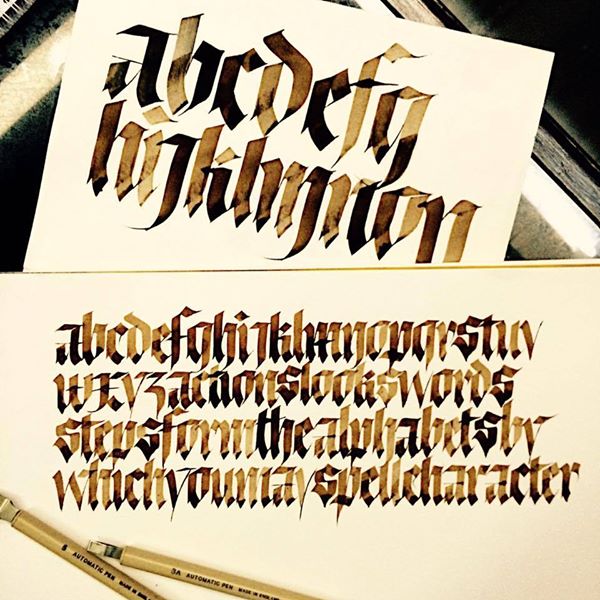 abcdefg
hijklmnop
abcdefghijklmnopqrstuv
wxyzactionslookswords
stepsformthealphabetsby
whichyoumayspellcharacter
5 AUTOMATIC PEN MADE IN
3A AUTOMATIC PEN MADE IN ENGLAND